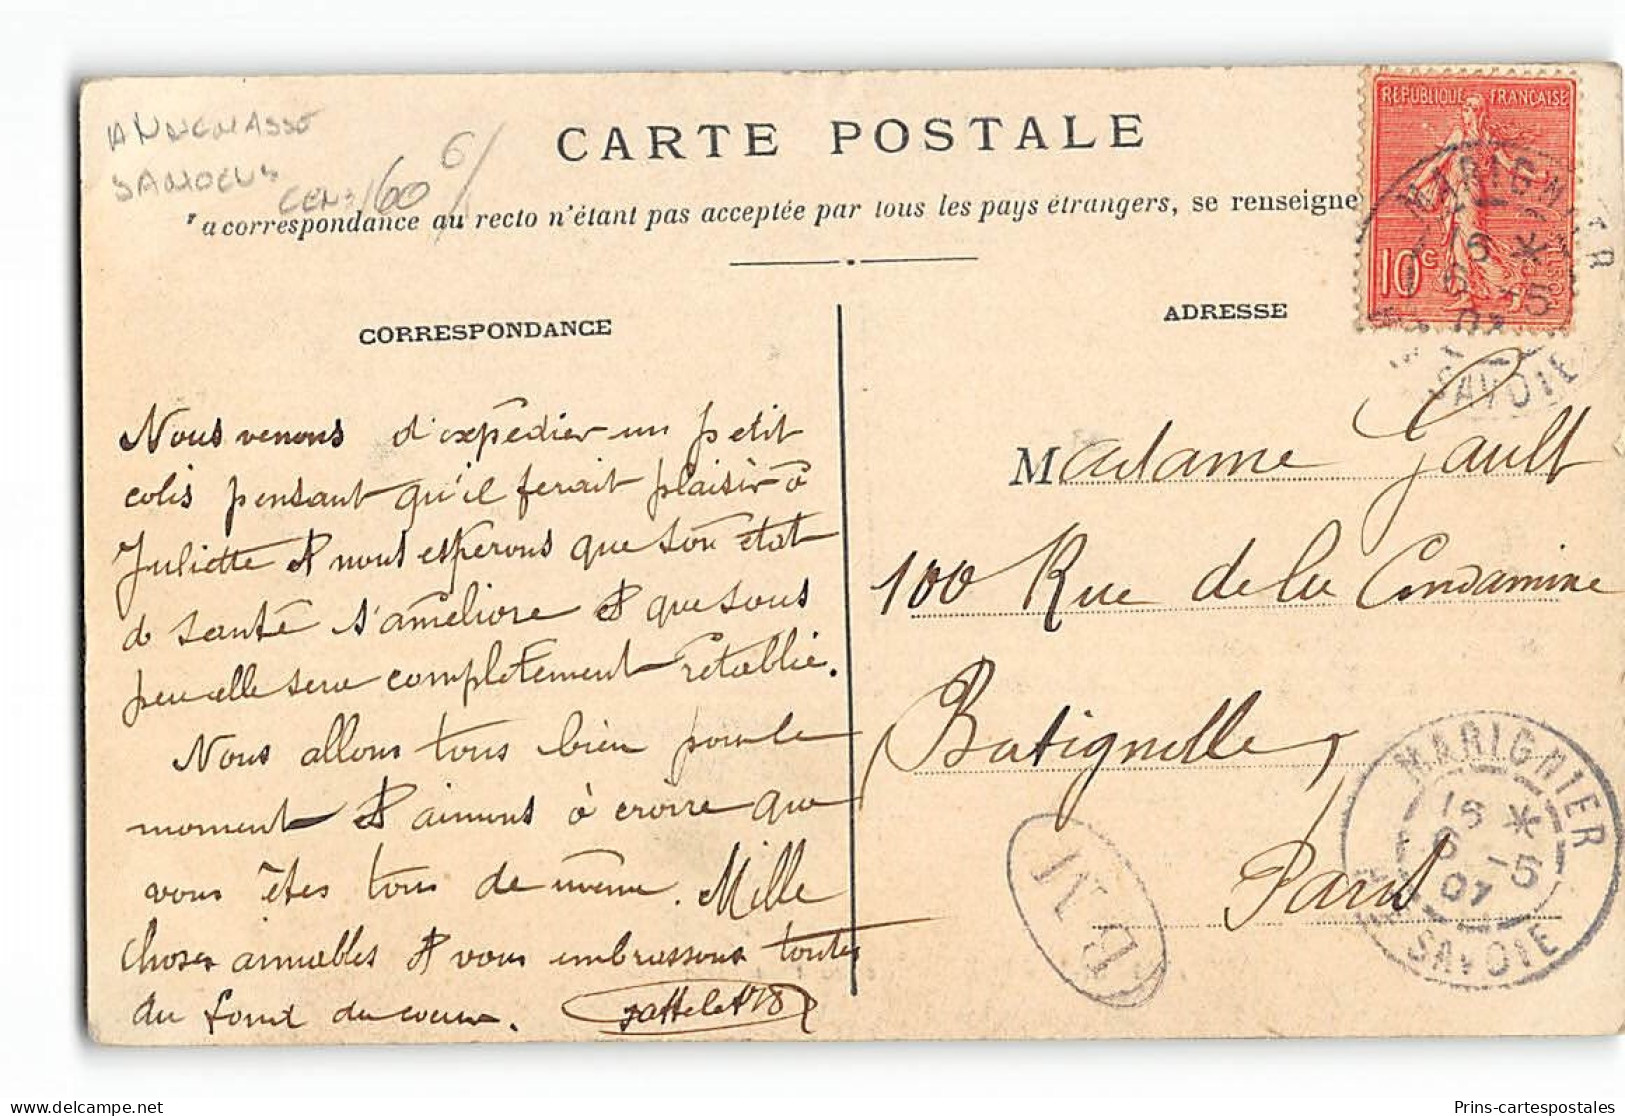 ANNEMASSE
SAMOENS
CEN: 160 6/
CARTE POSTALE
a correspondance au recto n'étant pas acceptée par tous les pays étrangers, se renseigne
REPUBLIQUE FRANÇAISE
10 c
POSTES
MARIGNIER
16 *
6 -5
07
SAVOIE
CORRESPONDANCE
Nous venons d'expédier un petit
colis pensant qu'il ferait plaisir à
Juliette et nous espérons que son état
de santé s'améliore et que sous
peu elle sera complètement rétablie.
Nous allons tous bien pour le
moment et aimons à croire que
vous êtes tous de même. Mille
choses aimables et vous embrassons toutes
du fond du coeur.
ADRESSE
Madame Gault
100 Rue de la Condamine
Batignolles
Paris
BM
MARIGNIER
16 *
6 -5
07
SAVOIE
Prins-cartespostales